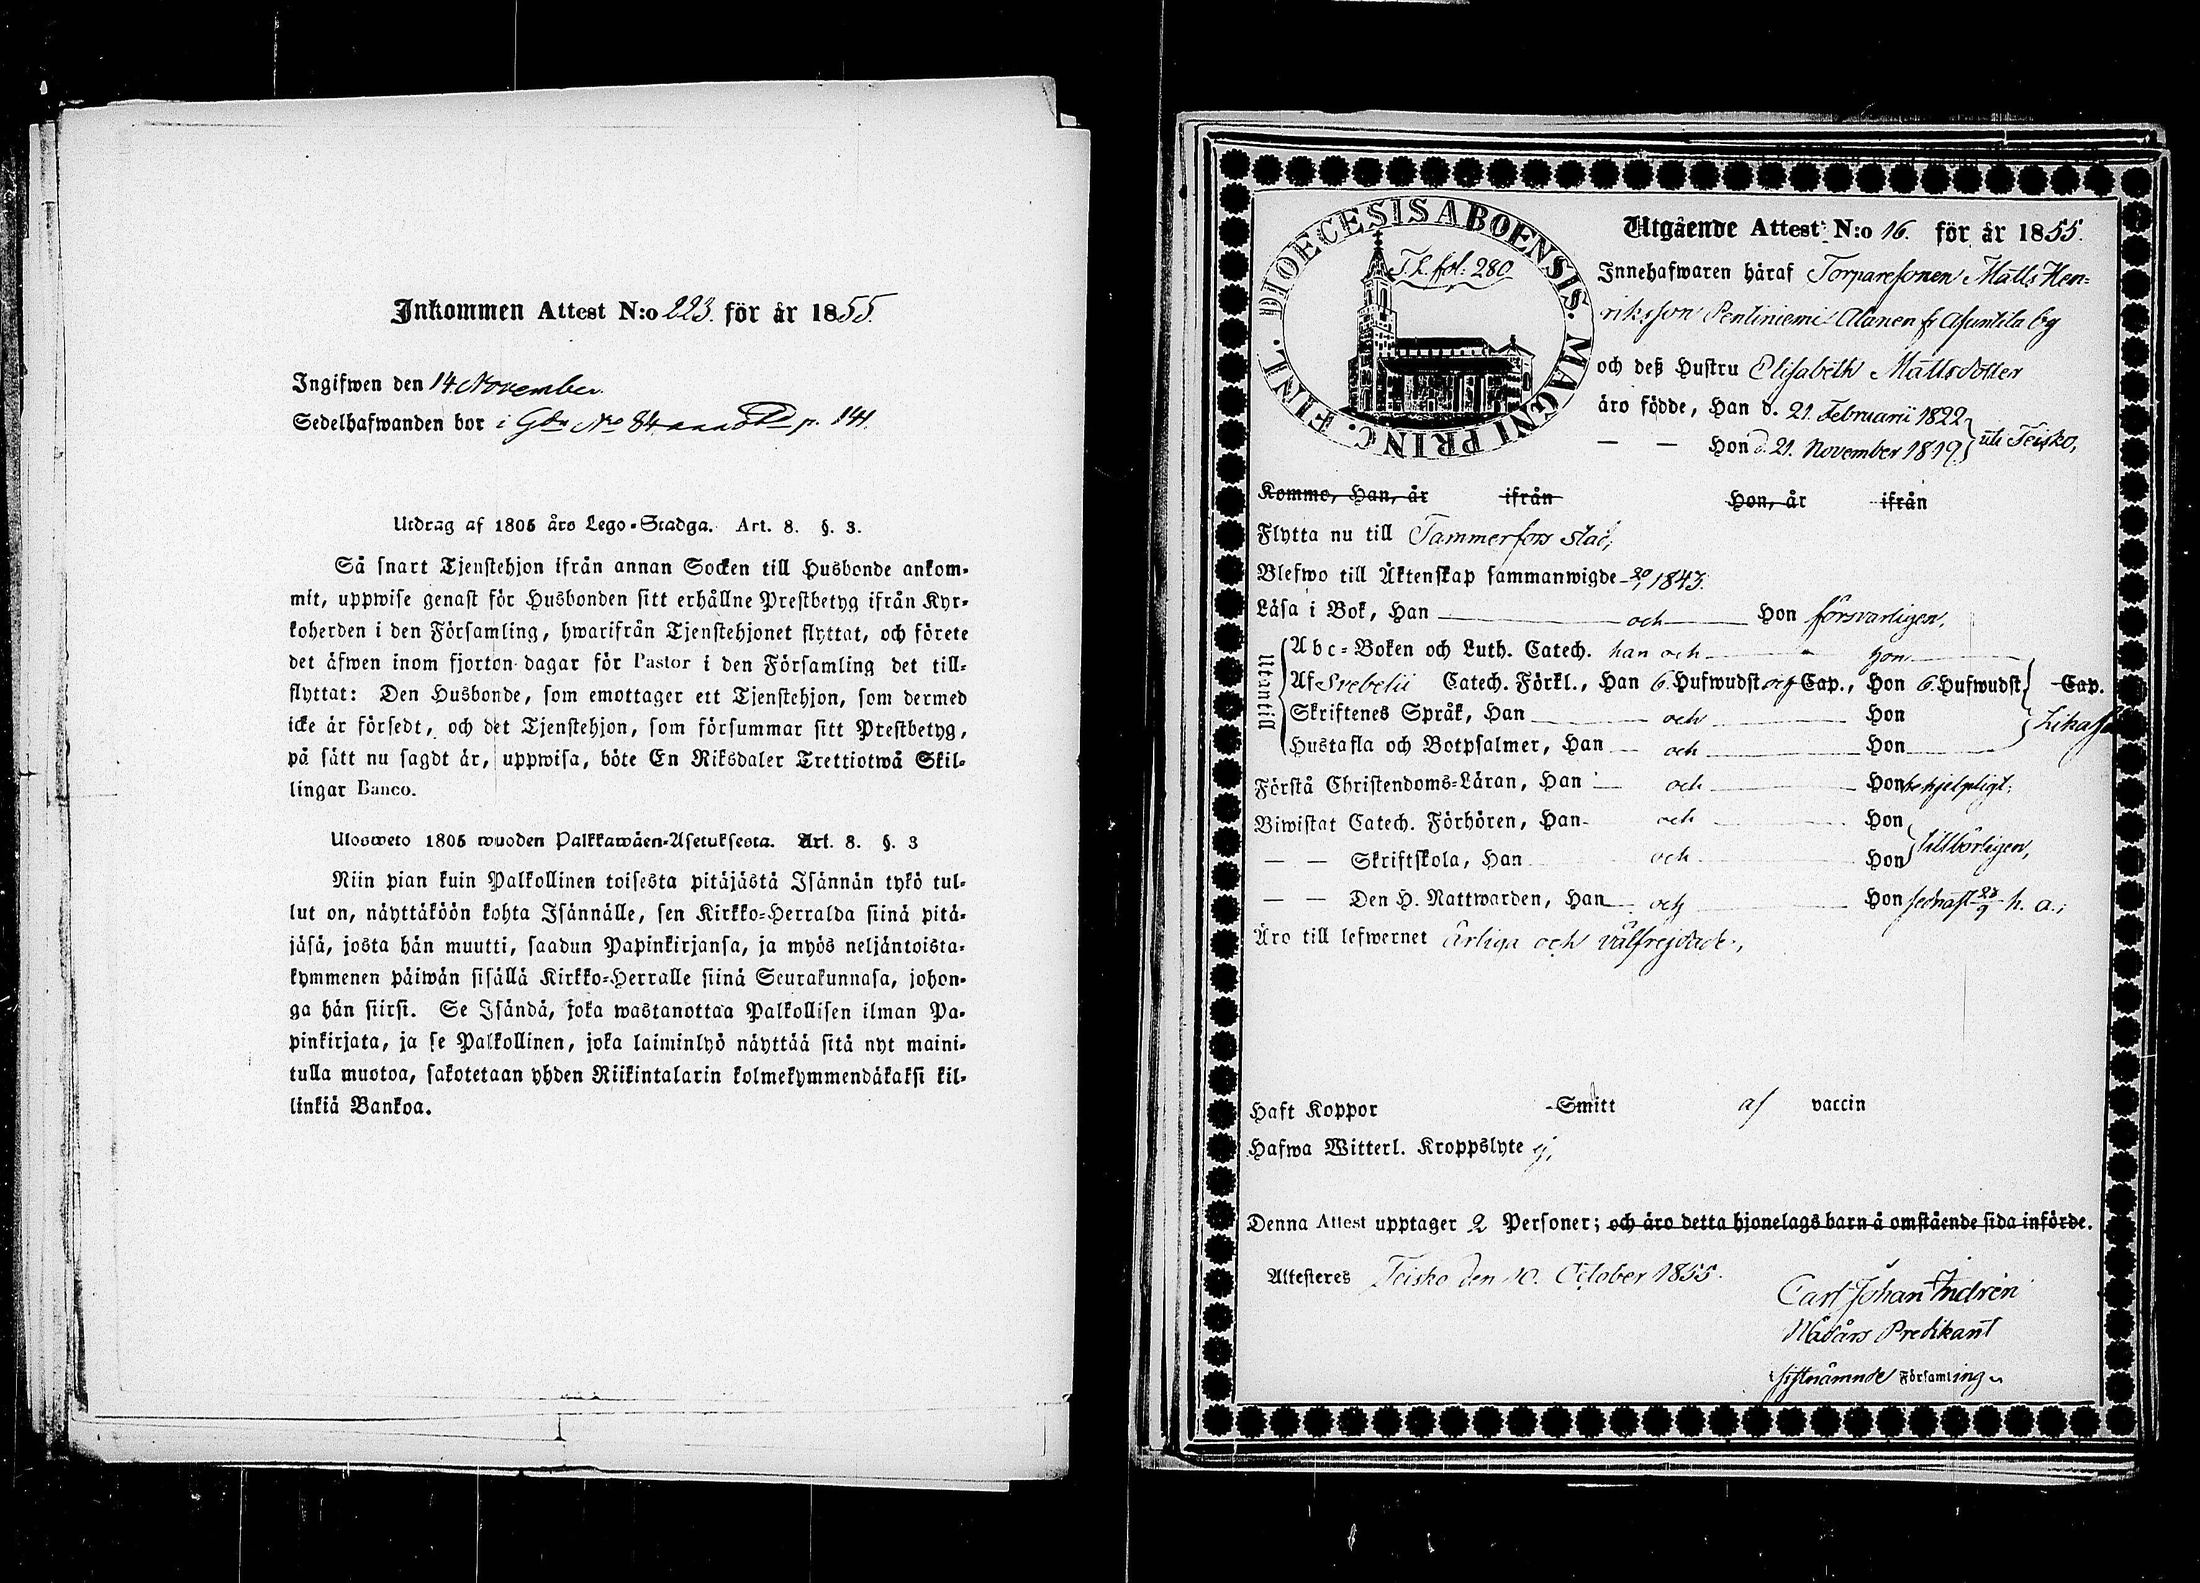 Inkommen Attest N:o 223. för år 1855.
Ingifwen den 14. November.
Sedelhafwanden bor i Gdn No 84 p. 141.
Utdrag af 1805 års Lego-Stadga. Art. 8. §. 3.
Så snart Tjenstehjon ifrån annan Socken till Husbonde ankom-
mit, uppwise genast för Husbonden sitt erhållne Prestbetyg ifrån Kyr-
koherden i den Församling, hwarifrån Tjenstehjonet flyttat, och förete
det äfwen inom fjorton dagar för Pastor i den Församling det till-
flyttat: Den Husbonde, som emottager ett Tjenstehjon, som dermed
icke är försedt, och det Tjenstehjon, som försummar sitt Prestbetyg,
på sätt nu sagdt är, uppwisa, böte En Riksdaler Trettiotwå Skil-
lingar Banco.
Ulosweto 1805 wuoden Palkkawäen-Asetuksesta. Art. 8. §. 3
Niin pian kuin Palkollinen toisesta pitäjästä Isännän tykö tul-
lut on, näyttäköön kohta Isännälle, sen Kirkko-Herralda siinä pitä-
jäsä, josta hän muutti, saadun Papinkirjansa, ja myös neljäntoista-
kymmenen päiwän sisällä Kirkko-Herralle siinä Seurakunnasa, johon-
ga hän siirsi. Se Isändä, joka wastanottaa Palkollisen ilman Pa-
pinkirjata, ja se Palkollinen, joka laiminlyö näyttää sitä nyt maini-
tulla muotoa, sakotetaan yhden Riikintalarin kolmekymmendäkaksi kil-
linkiä Bankoa.
DIOECESIS ABOENSIS. MAGNI PRINC. FINL.
T. k. fol: 280
Utgående Attest N:o 16. för år 1855.
Innehafwaren häraf Torparesonen Matts Hen-
riksson Pentiniemi Alanen fr Asuntila by
och deß Hustru Elisabeth Mattsdotter
äro födde, Han d. 21. Februarii 1822
— — Hon d. 21. November 1819 uti Teisko,
Komme, Han, år ifrån Hon, år ifrån
Flytta nu till Tammerfors stad,
Blefwo till Äktenskap sammanwigde 20/1 1843.
Läsa i Bok, Han och Hon försvarligen,
Utantill
Abc-Boken och Luth. Catech. han och hon
Af Svebelii Catech. Förkl., Han 6. Hufwudst och Cap., Hon 6. Hufwudst Cap.
Skriftenes Språk, Han och Hon
Hustafla och Botpsalmer, Han och Hon
Förstå Christendoms-Läran, Han och Hon behjelpligt;
Biwistat Catech. Förhören, Han och Hon
— — Skriftskola, Han och Hon tillbörligen,
— — Den H. Nattwarden, Han och Hon sednast 23/9 h. a.;
Äro till lefwernet ärliga och välfrejdade,
Haft Koppor Smitt af vaccin
Hafwa Witterl. Kroppslyte ej,
Denna Attest upptager 2 Personer; och äro detta hjonelags barn å omstående sida införde.
Attesteres Teisko den 10. October 1855.
Carl Johan Indrén
Nådårs Predikant
sistnämnde Församling